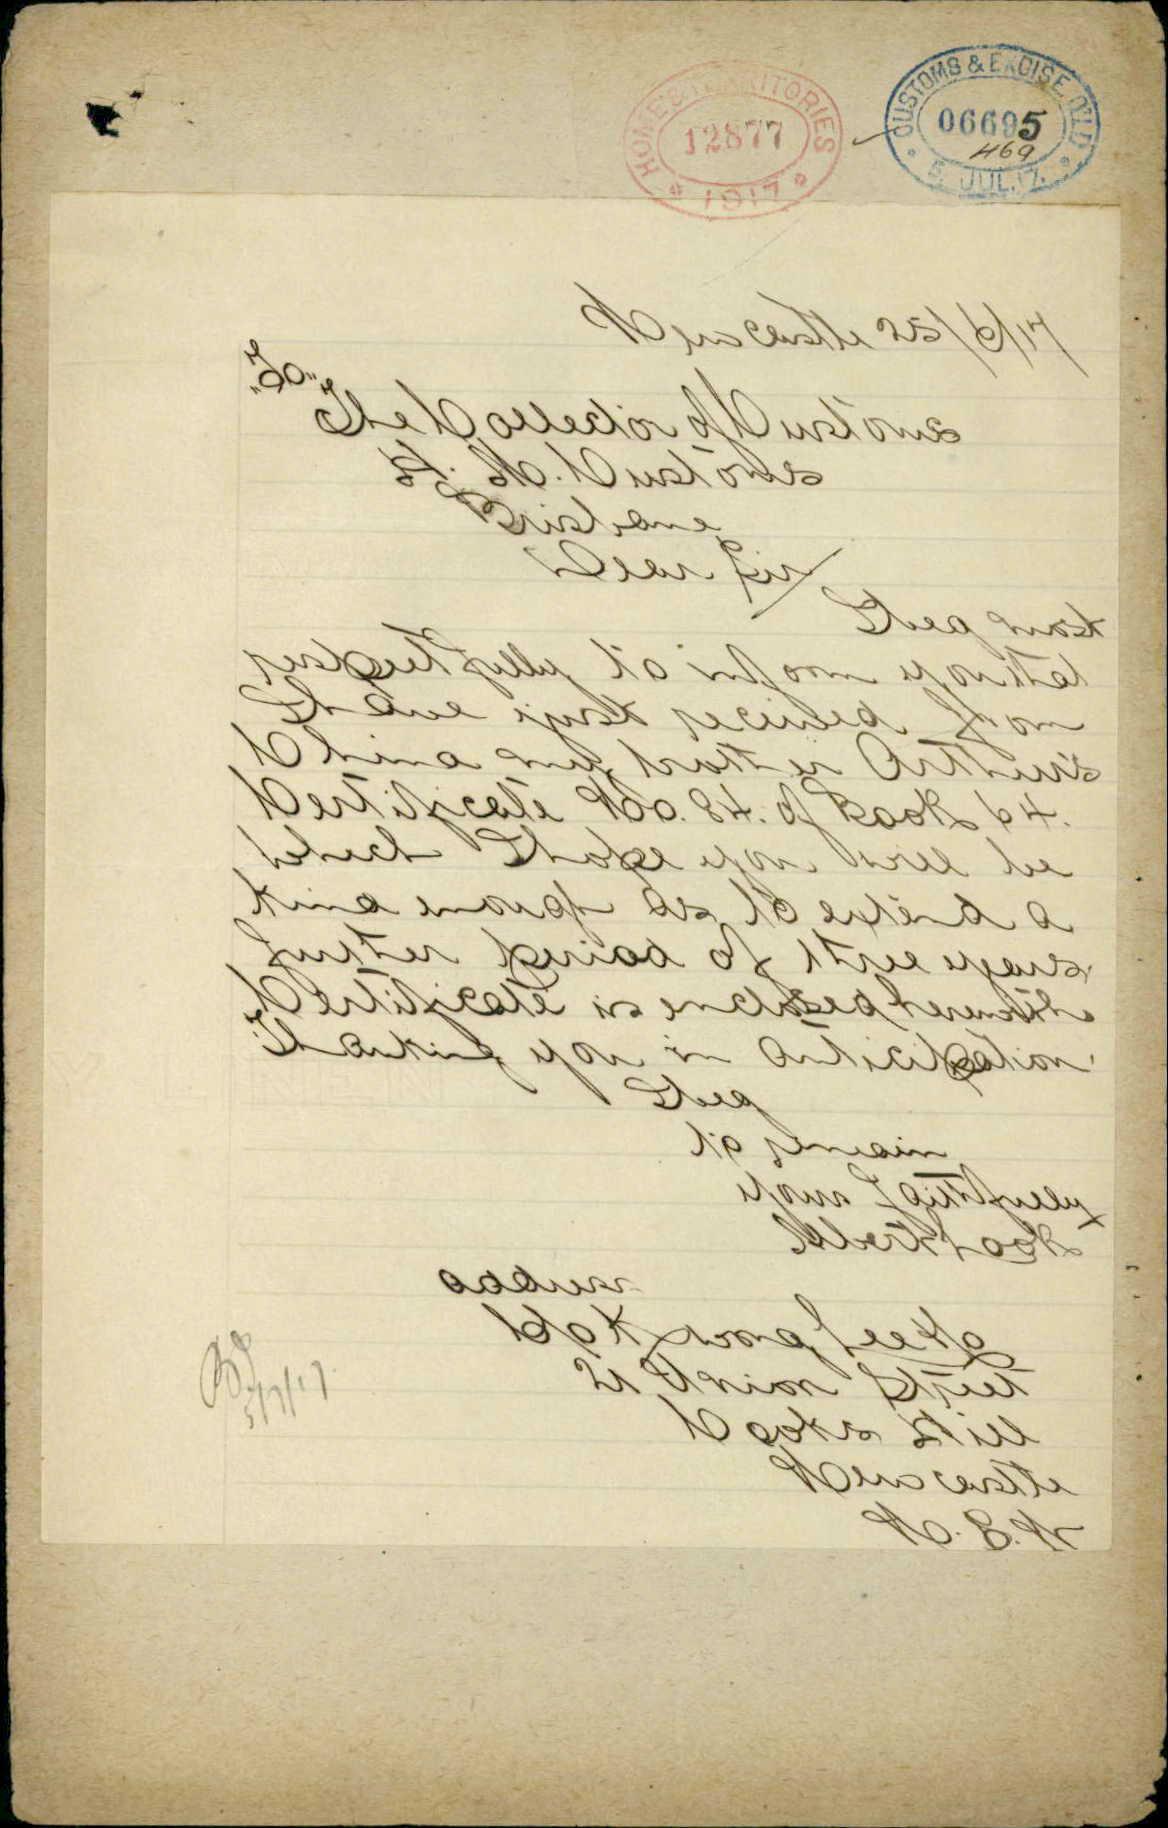 HOME & TERRITORIES
12877
1917
CUSTOMS & EXCISE QLD
06695
469
5. JUL. 17.
Newcastle 25/6/17
"To"
The Collector of Customs
H. M. Customs
Brisbane
Dear Sir
I beg most
respectfully to inform you that
I have just received from
China my brother Arthur's
Certificate No. 84. of Book 64.
which I hope you will be
kind enough as to extend a
further period of three years,
Certificate is enclosed herewith
Thanking you in anticipation.
I beg
to remain
yours Faithfully
Albert Look
address
C/o Kwong Lee
21 Union Street
Cooks Hill
Newcastle
N. S. W
5/7/17